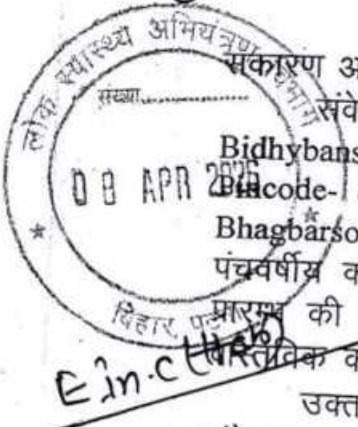 लोक स्वास्थ्य अभियंत्रण विभाग
संख्या
08 APR
बिहार, पटना
सकारण
संवे
Bidhybans
Pincode-
Bhagbarso
पंचवर्षीय
प्रारम्भ की
वास्तविक
उक्त
E.in.C